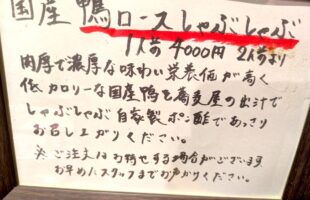 国産 鴨ロースしゃぶしゃぶ
1人前 4000円 2人前より
肉厚で濃厚な味わい栄養価が高く
低カロリーな国産鴨を蕎麦屋の出汁で
しゃぶしゃぶ自家製ポン酢であっさり
お召し上がりください。
※ご注文はお待せする場合がございます
お早めにスタッフまでお声がけください。